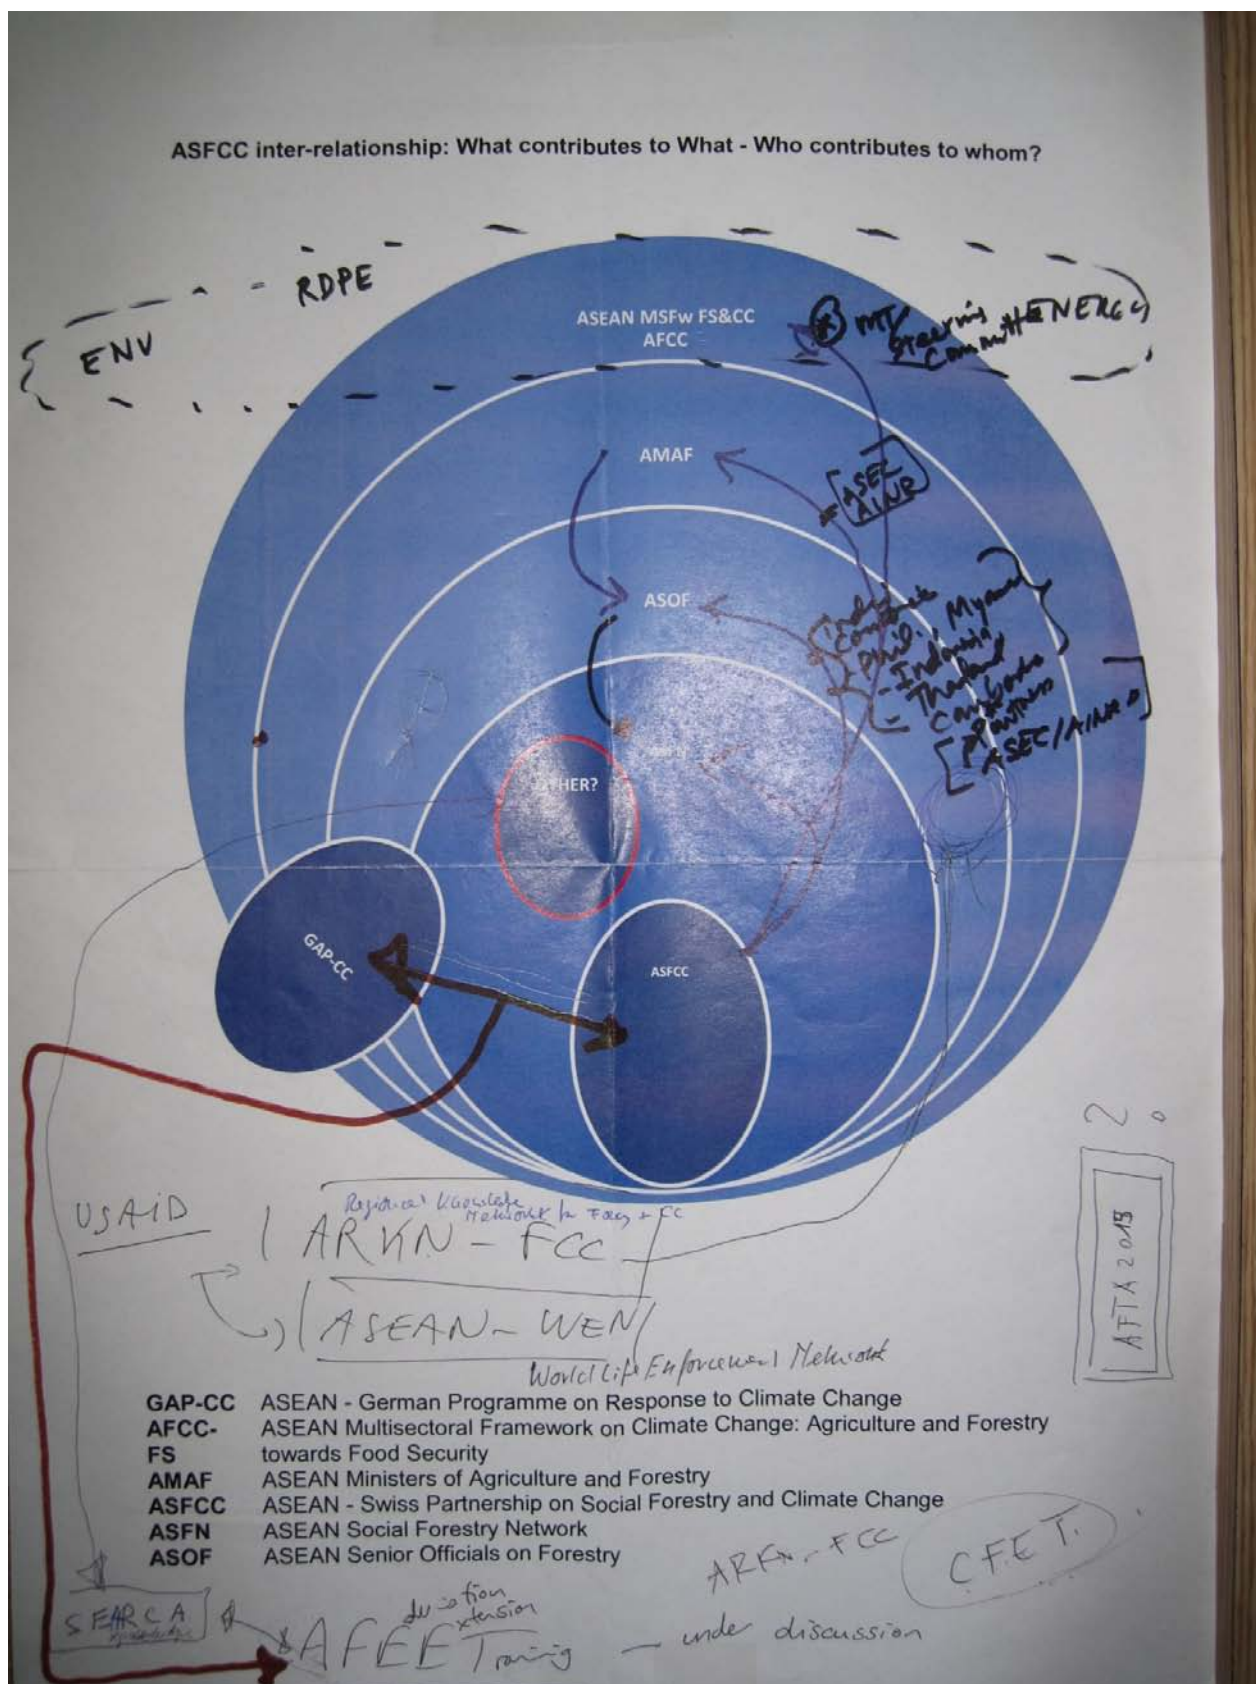 ASFCC inter-relationship: What contributes to What - Who contributes to whom?
RDPE
ENV
ASEAN MSFw FS&CC
AFCC
MT
Steering
Committ ENERGY
AMAF
[ASEC
AINR]
ASOF
Phil. Myanm
- Indonesia
- Thailand
Cambodia
ASEC/AINR
HER?
GAP-CC
ASFCC
?
AFTA 2015
USAiD
Regional Knowledge
Network for
ARKN - FCC
ASEAN - WEN
World Life Enforcement Network
GAP-CC ASEAN - German Programme on Response to Climate Change
AFCC- ASEAN Multisectoral Framework on Climate Change: Agriculture and Forestry
FS towards Food Security
AMAF ASEAN Ministers of Agriculture and Forestry
ASFCC ASEAN - Swiss Partnership on Social Forestry and Climate Change
ASFN ASEAN Social Forestry Network
ASOF ASEAN Senior Officials on Forestry
ARKN - FCC
C.F.E.T.
SEARCA
extension
AFEETraining — under discussion